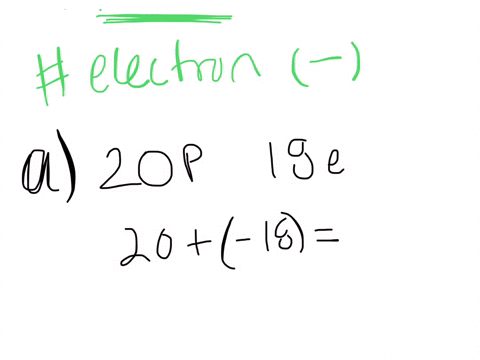 # electron (-)
a) 20P 18e
20 + (-18) =